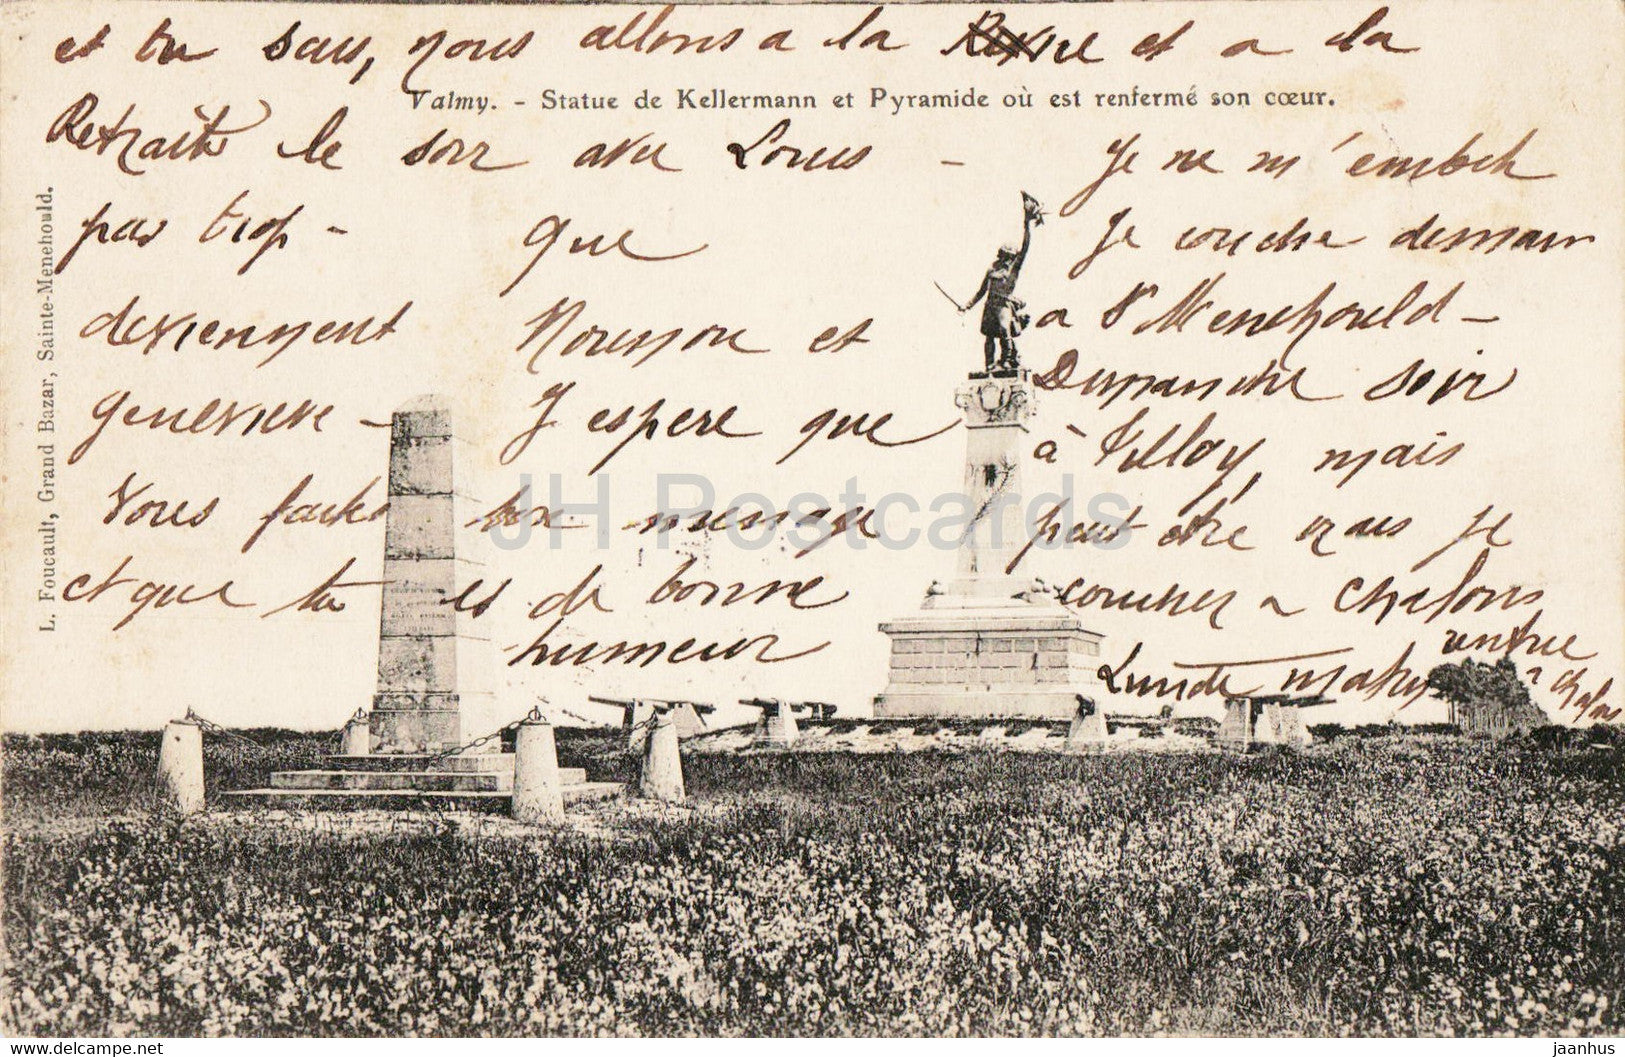 et tu sais, nous allons a la Revue et a la
Valmy. - Statue de Kellermann et Pyramide où est renfermé son cœur.
Retraite le soir avec Louis -
pas trop - que
deviennent Nounou et
genevieve - J espere que
vous faites bon menage
et que tu es de bonne
humeur
Je ne m'embete
Je couche demain
a St Menehould -
Dimanche soir
à Tilloy, mais
peut etre irais je
coucher a Chalons
Lundi matin
rentree
a Chalons
L. Foucault, Grand Bazar, Sainte-Menehould.
JH Postcards
www.delcampe.net
jaanhus